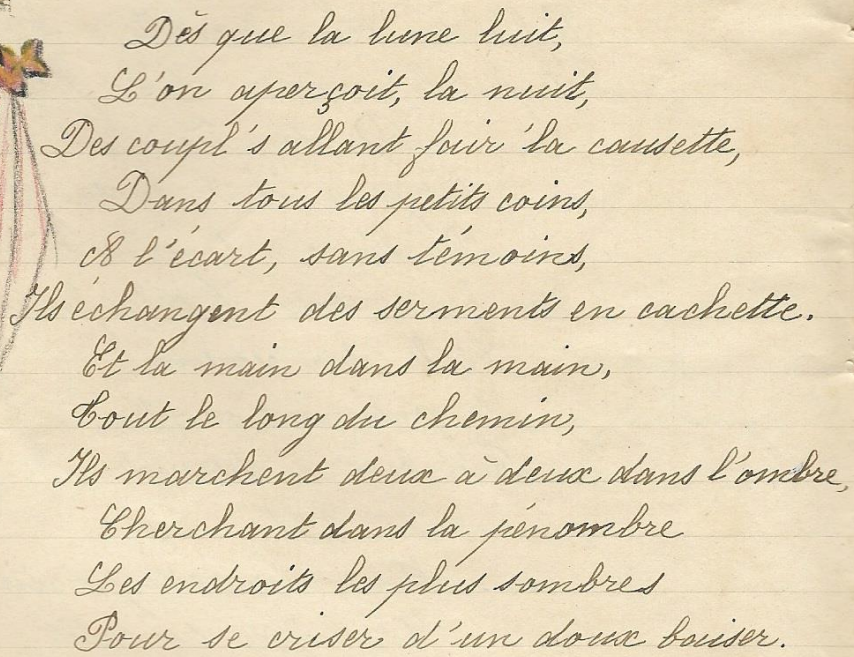 Dès que la lune luit,
L'on aperçoit, la nuit,
Des coupl's allant fair' la causette,
Dans tous les petits coins,
A l'écart, sans témoins,
Ils échangent des serments en cachette.
Et la main dans la main,
Tout le long du chemin,
Ils marchent deux à deux dans l'ombre,
Cherchant dans la pénombre
Les endroits les plus sombres
Pour se criser d'un doux baiser.